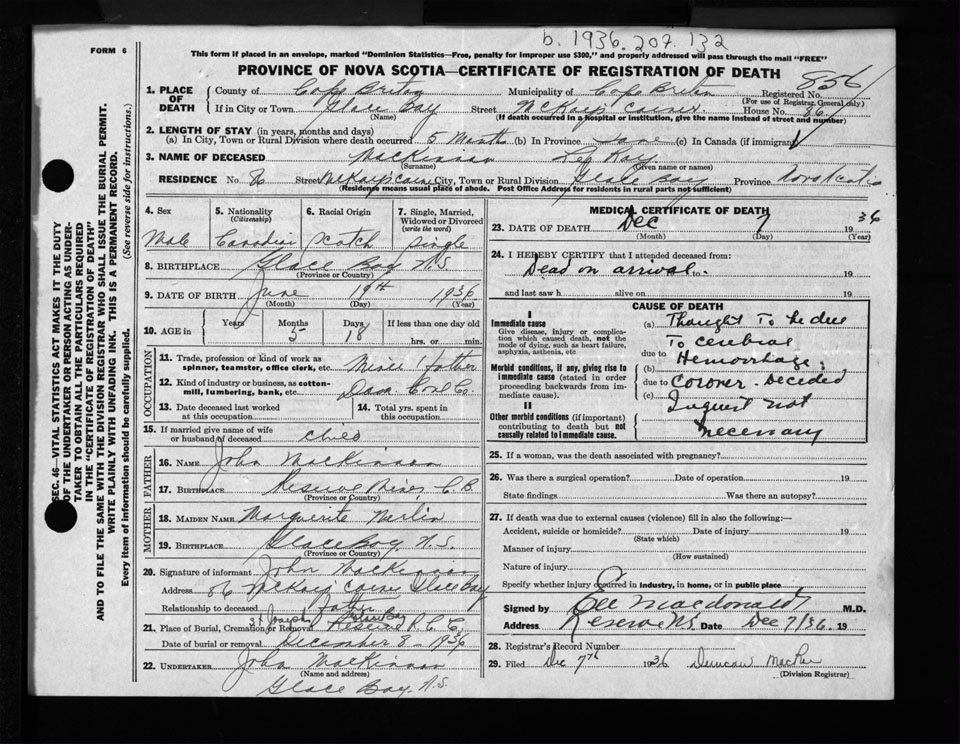 b. 1936. 207. 132
FORM 6
This form if placed in an envelope, marked "Dominion Statistics—Free, penalty for improper use $300," and properly addressed will pass through the mail "FREE"
PROVINCE OF NOVA SCOTIA—CERTIFICATE OF REGISTRATION OF DEATH
856
1. PLACE OF DEATH
County of Cape Breton Municipality of Cape Breton Registered No.
(For use of Registrar General only)
If in City or Town Glace Bay Street House No.
(Name) (If death occurred in a hospital or institution, give the name instead of street and number)
2. LENGTH OF STAY (in years, months and days)
(a) In City, Town or Rural Division where death occurred 5 Months (b) In Province Same (c) In Canada (if immigrant)
3. NAME OF DECEASED MacKinnon Leo Ray
(Surname) (Given name or names)
RESIDENCE No. Street City, Town or Rural Division Glace Bay Province Nova Scotia
(Residence means usual place of abode. Post Office Address for residents in rural parts not sufficient)
4. Sex 5. Nationality 6. Racial Origin 7. Single, Married, Widowed or Divorced
(Citizenship) (write the word)
Male Canadian Scotch Single
8. BIRTHPLACE Glace Bay N.S.
(Province or Country)
9. DATE OF BIRTH June 19th 1936
(Month) (Day) (Year)
10. AGE in Years Months Days If less than one day old
5 18 hrs. or min.
OCCUPATION
11. Trade, profession or kind of work as spinner, teamster, office clerk, etc. father
12. Kind of industry or business, as cotton-mill, lumbering, bank, etc. Dom Coal Co.
13. Date deceased last worked at this occupation 14. Total yrs. spent in this occupation
15. If married give name of wife or husband of deceased child
FATHER
16. NAME John MacKinnon
17. BIRTHPLACE Reserve Mines C.B.
(Province or Country)
MOTHER
18. MAIDEN NAME Marguerite
19. BIRTHPLACE Glace Bay N.S.
(Province or Country)
20. Signature of informant John MacKinnon
Address 86 Glace Bay
Relationship to deceased father
St Joseph
21. Place of Burial, Cremation or Removal Reserve
Date of burial or removal December 8 - 1936
22. UNDERTAKER John MacKinnon
(Name and address)
Glace Bay. N.S.
MEDICAL CERTIFICATE OF DEATH
23. DATE OF DEATH Dec 7 1936
(Month) (Day) (Year)
24. I HEREBY CERTIFY that I attended deceased from:
Dead on arrival to 19
and last saw h alive on 19
I
Immediate cause
Give disease, injury or complication which caused death, not the mode of dying, such as heart failure, asphyxia, asthenia, etc
Morbid conditions, if any, giving rise to immediate cause (stated in order proceeding backwards from immediate cause).
II
Other morbid conditions (if important) contributing to death but not causally related to immediate cause.
CAUSE OF DEATH
(a) Thought To be due
To cerebral
due to Hemorrhage;
(b)
due to Coroner. Decided
(c) Inquest not
necessary
25. If a woman, was the death associated with pregnancy?
26. Was there a surgical operation? Date of operation 19
State findings Was there an autopsy?
27. If death was due to external causes (violence) fill in also the following:—
Accident, suicide or homicide? Date of injury 19
(State which)
Manner of injury
(How sustained)
Nature of injury
Specify whether injury occurred in industry, in home, or in public place
Signed by Macdonald M.D.
Address Reserve N.S. Date Dec 7/36. 19
28. Registrar's Record Number
29. Filed Dec 7th 1936 Duncan MacRae
(Division Registrar)
SEC. 46—VITAL STATISTICS ACT MAKES IT THE DUTY
OF THE UNDERTAKER OR PERSON ACTING AS UNDER-
TAKER TO OBTAIN ALL THE PARTICULARS REQUIRED
IN THE "CERTIFICATE OF REGISTRATION OF DEATH"
AND TO FILE THE SAME WITH THE DIVISION REGISTRAR WHO SHALL ISSUE THE BURIAL PERMIT.
WRITE PLAINLY WITH UNFADING INK. THIS IS A PERMANENT RECORD.
Every item of information should be carefully supplied. (See reverse side for instructions.)